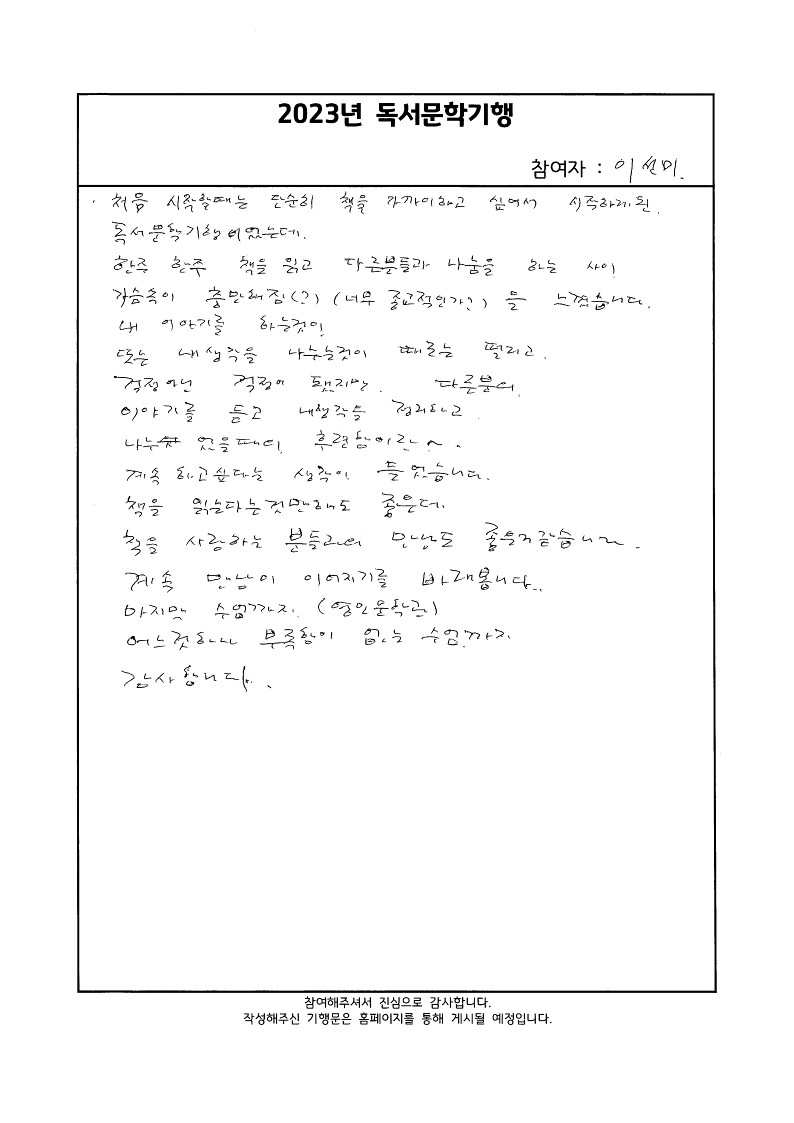 2023년 독서문학기행
참여자 : 이선미.
처음 시작할때는 단순히 책을 가까이하고 싶어서 시작하게된
독서문학기행이었는데.
한주 한주 책을 읽고 다른분들과 나눔을 하는 사이
가슴속이 충만해짐(?) (너무 종교적인가?) 을 느꼈습니다.
내 이야기를 하는것이
또는 내생각을 나누는것이 때로는 떨리고.
걱정아닌 걱정이 됐지만. 다른분의
이야기를 듣고 내생각을 정리하고.
나누 었을때의 후련함이란~.
계속 하고싶다는 생각이 들었습니다.
책을 읽는다는것만해도 좋은데.
책을 사랑하는 분들과의 만남도 좋은거같습니다.
계속 만남이 이어지기를 바래봅니다..
마지막 수업까지. (영인문학관)
어느것하나 부족함이 없는 수업까지
감사합니다.
참여해주셔서 진심으로 감사합니다.
작성해주신 기행문은 홈페이지를 통해 게시될 예정입니다.